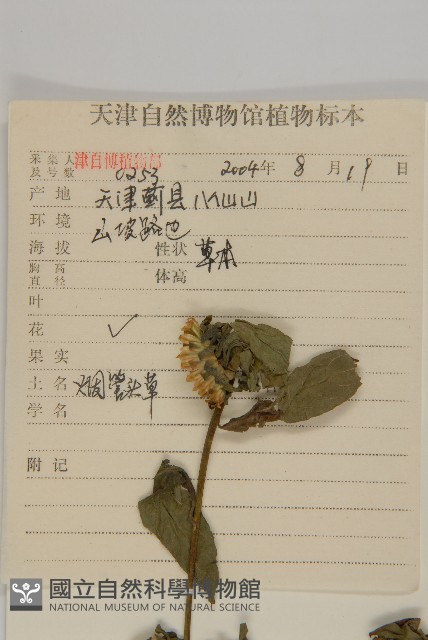 天津自然博物馆植物标本
采集人及号数 津自博植物部 0253 2004年 8月19日
产地 天津蓟县八仙山
环境 山坡路边
海拔 性状 草本
胸高直径 体高
叶
花 ✓
果实
土名 烟管头草
学名
附记
國立自然科學博物館
NATIONAL MUSEUM OF NATURAL SCIENCE